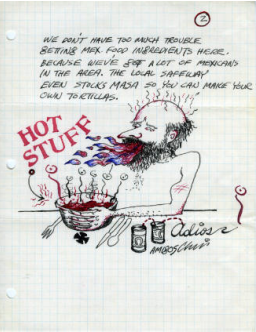 2
WE DON'T HAVE TOO MUCH TROUBLE
GETTING MEX FOOD INGREDIENTS HERE.
BECAUSE WE'VE GOT A LOT OF MEXICANS
IN THE AREA. THE LOCAL SAFEWAY
EVEN STOCKS MASA SO YOU CAN MAKE YOUR
OWN TORTILLAS.
HOT
STUFF
adios